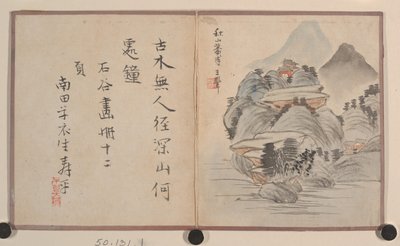 秋山蕭寺王翬
古木無人径深山何
處鐘
石谷畫冊十二
頁
南田草衣生壽平
50.131